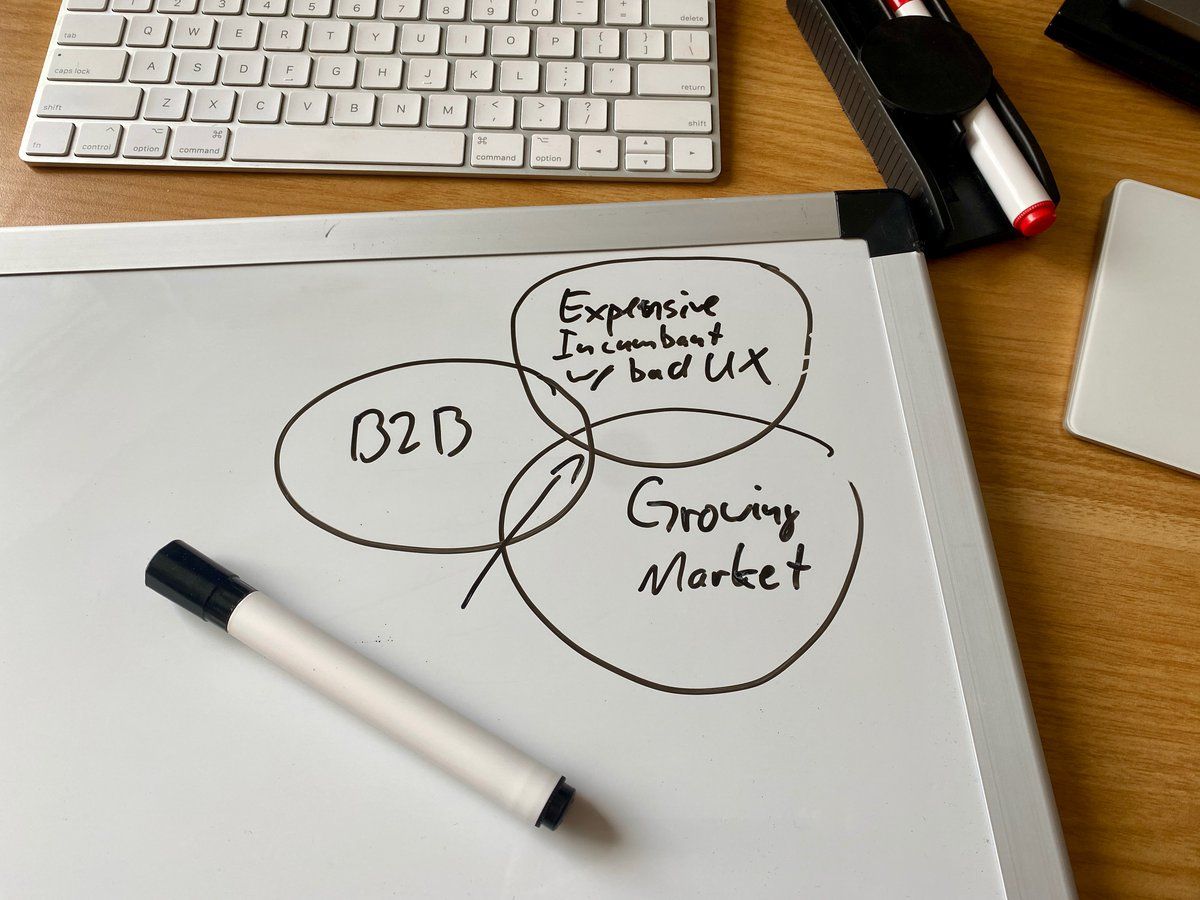 1 2 3 4 5 6 7 8 9 0 - = delete
tab Q W E R T Y U I O P { [ } ] | \
caps lock A S D F G H J K L : ; " ' return
shift Z X C V B N M < , > . ? / shift
fn control option command command option
Expensive
Incumbant
w/ bad UX
B2B
Growing
Market